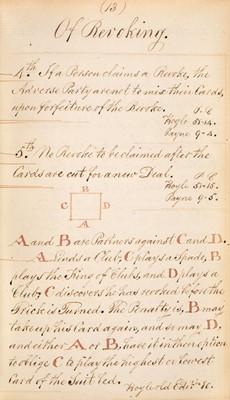 (13)
Of Revoking.
4th If a Person claims a Revoke, the
Adverse Party are not to mix their Cards,
upon forfeiture of the Revoke.
Hoyle 51-14.
Payne 9-4.
5th No Revoke to be claimed after the
Cards are cut for a new Deal.
Hoyle 51-15.
Payne 9-5.
B
C D
A
A and B are Partners against C and D.
A leads a Club, C plays a Spade, B
plays the King of Clubs, and D plays a
Club, C discovers he has revoked before the
Trick is Turned. The Penalty is, B may
take up his Card again, and so may D,
and either A or B, have it in their option
to oblige C to play the highest or lowest
Card of the Suit led.
Hoyle old Edin